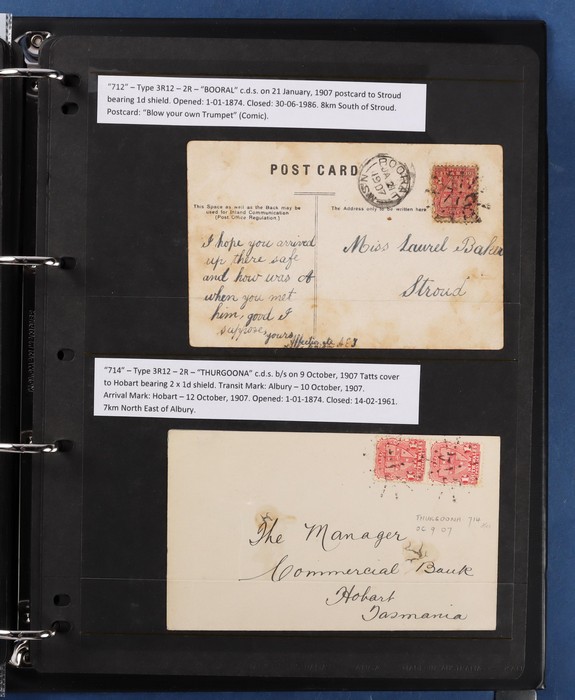 "712" – Type 3R12 – 2R – "BOORAL" c.d.s. on 21 January, 1907 postcard to Stroud
bearing 1d shield. Opened: 1-01-1874. Closed: 30-06-1986. 8km South of Stroud.
Postcard: "Blow your own Trumpet" (Comic).
POST CARD
BOORAL
JA 21
1907
N.S.W
This Space as well as the Back may be
used for Inland Communication
(Post Office Regulation.)
The Address only to be written here
I hope you arrived
up there safe
and how was A
when you met
him, good I
suppose, yours
Miss Laurel Baker
Stroud
"714" – Type 3R12 – 2R – "THURGOONA" c.d.s. b/s on 9 October, 1907 Tatts cover
to Hobart bearing 2 x 1d shield. Transit Mark: Albury – 10 October, 1907.
Arrival Mark: Hobart – 12 October, 1907. Opened: 1-01-1874. Closed: 14-02-1961.
7km North East of Albury.
THURGOONA 714
06 9 07
The Manager
Commercial Bank
Hobart
Tasmania